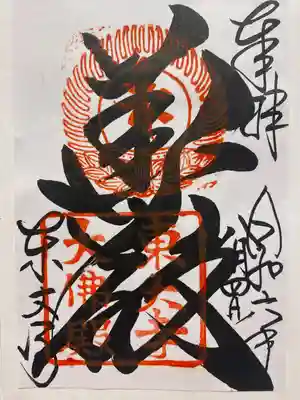 奉拝
令和六年
四月
華厳
東大寺
大佛殿
東大寺